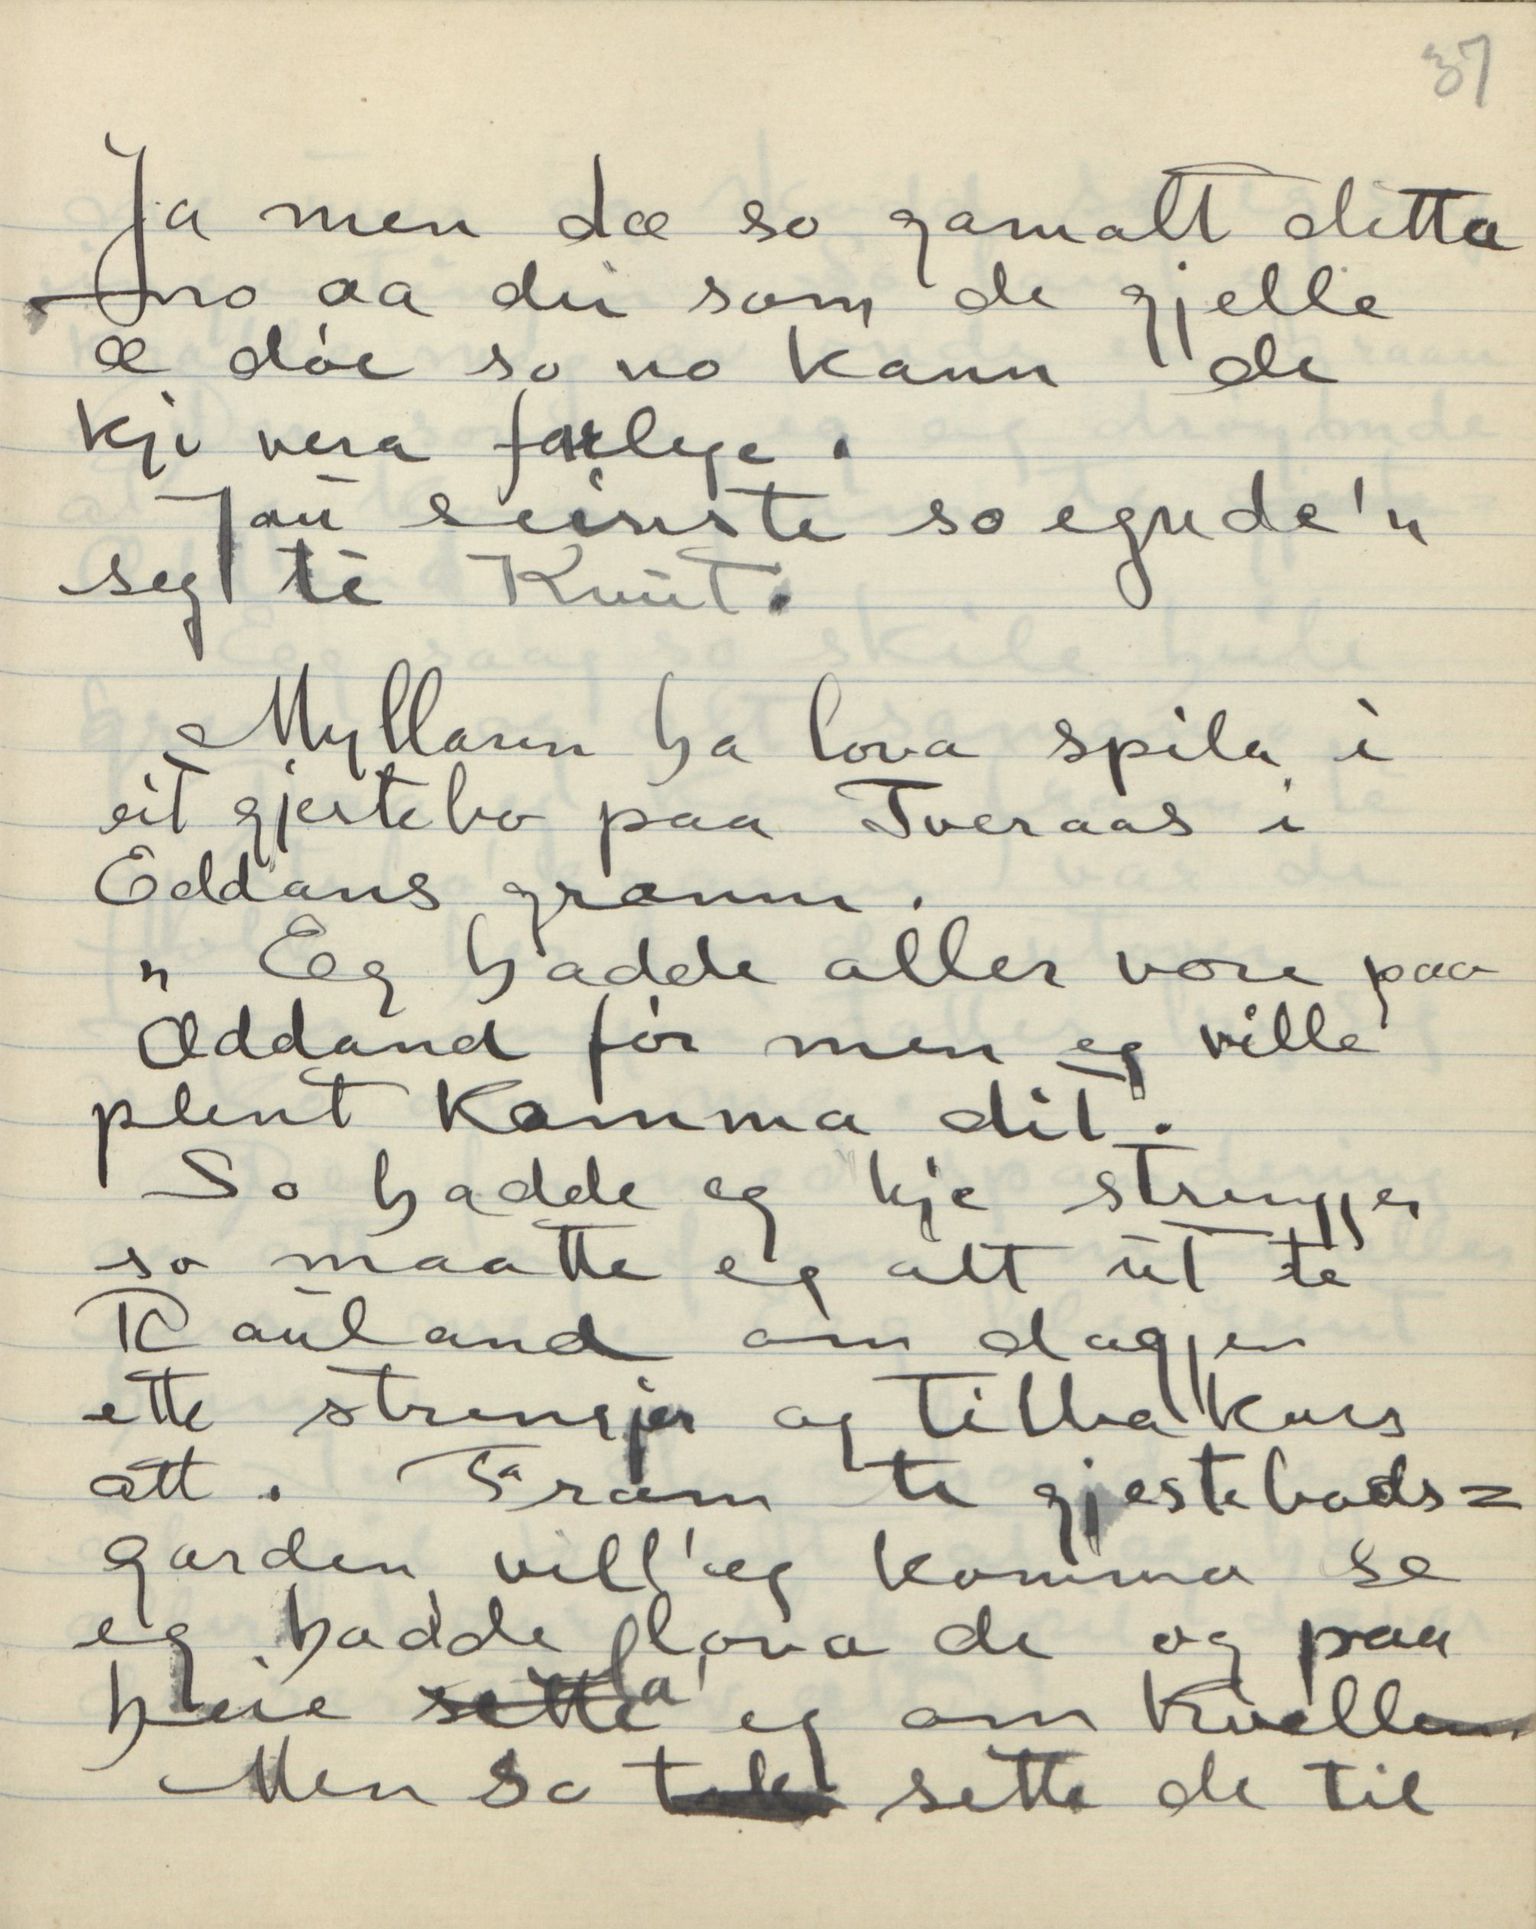 37
Ja men dæ so gamalt ditta
no aa dei som de gjelle
æ döe so no kann de
kji vera farlege.
Jau seinste so egnde'n
seg te Knut.
Myllaren ha lova spila i
eit gjestebo paa Tveraas i
Eddans grænn.
" Eg hadde aller vore paa
Øddand för men eg ville
plent komma dit.
So hadde eg kje strengjer
so maatte eg alt ut te
Rauland om dagjen
ette strengjer og tilbakars
att. Fram te gjestebods=
garden vill'eg komma so
eg hadde lova de og paa
heie la eg om kvellen.
Men so sette de til